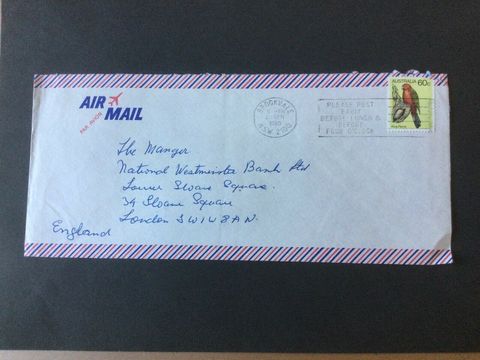 AIR MAIL
PAR AVION
BROOKVALE
1980
N.S.W. 2100
PLEASE POST
EARLY
BEFORE LUNCH &
BEFORE
FOUR O'CLOCK
AUSTRALIA
60c
King Parrot
The Manger
National Westminster Bank Ltd
Lower Sloane Square
34 Sloane Square
London SW1W8AN.
England